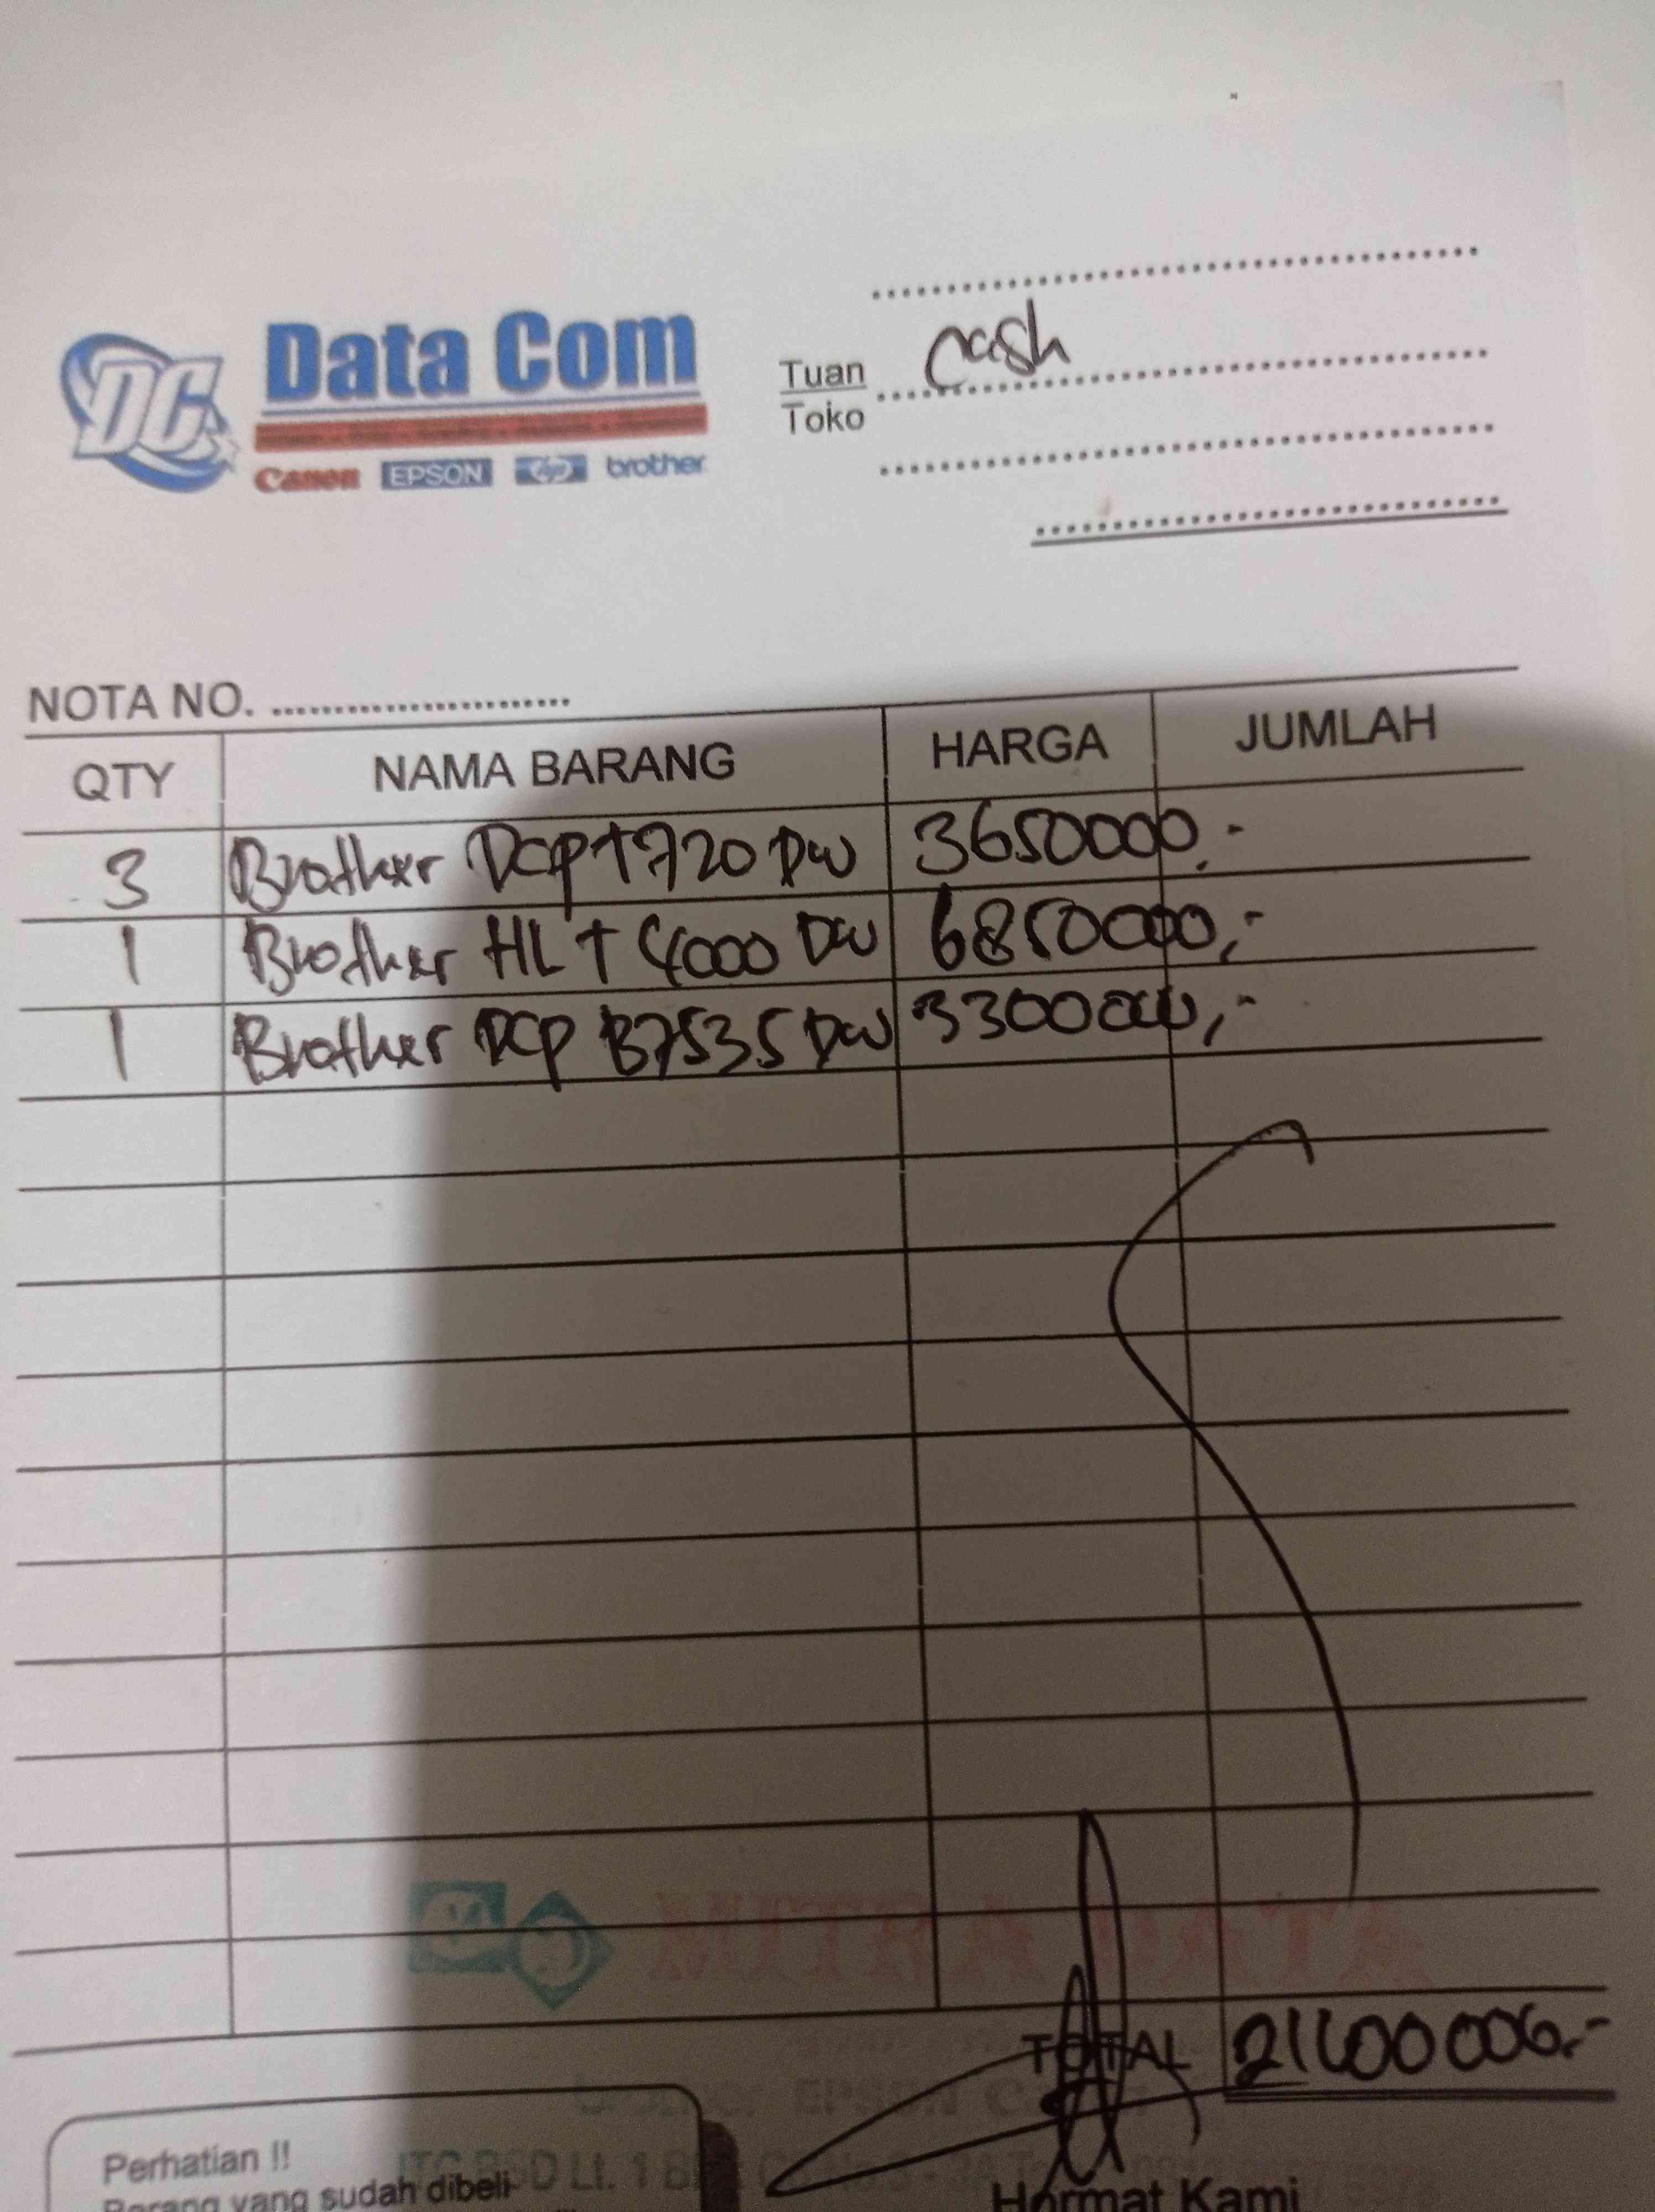 Data Com
DC
Canon EPSON hp brother
Tuan cash
Toko
NOTA NO. ........................
QTY NAMA BARANG HARGA JUMLAH
3 Brother DCP T720 DW 3650000,-
1 Brother HL T 4000 DW 6850000,-
1 Brother DCP B7535 DW 3300000,-
TOTAL 21100000,-
Perhatian !!
Barang yang sudah dibeli
Hormat Kami